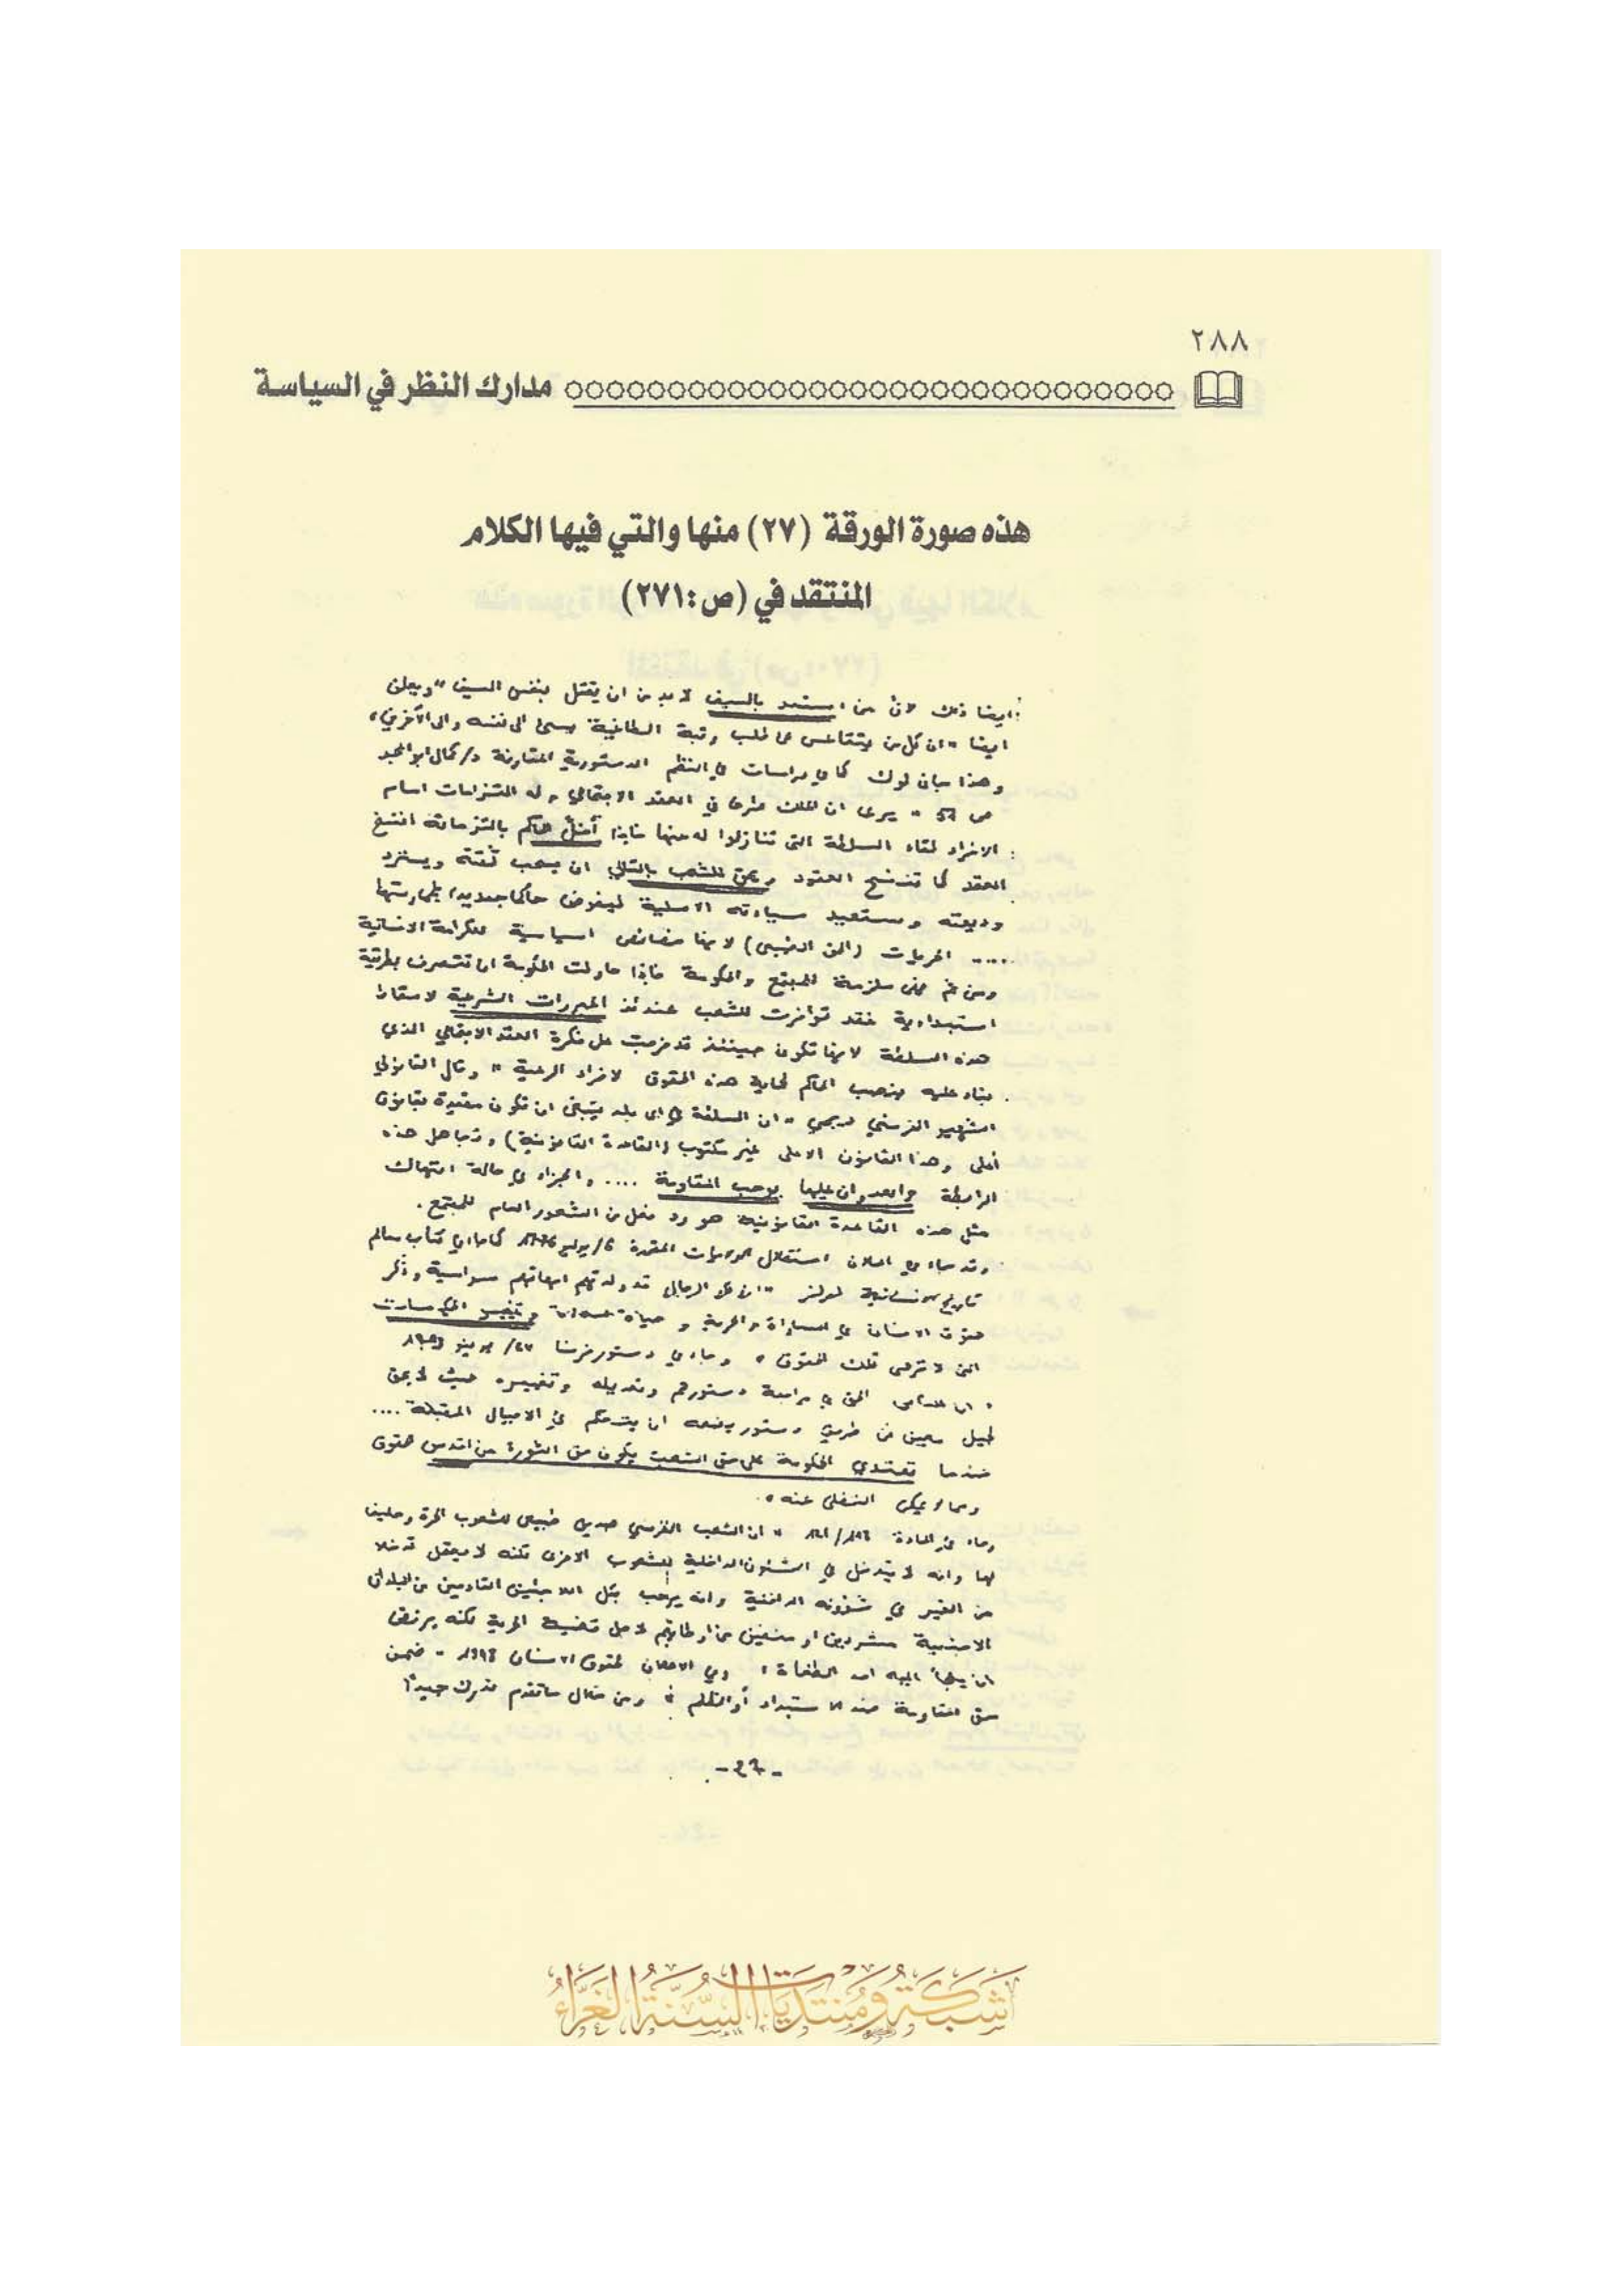 ٢٨٨
مدارك النظر في السياسة
هذه صورة الورقة (٢٧) منها والتي فيها الكلام
المنتقد في (ص:٢٧١)
ايضا ذلك لان من استبد بالسيف لا بد من ان يقتل بنفس السيف" ويعلن
ايضا "ان كل من يتقاعس عن طلب رتبة الطاغية يسئ الى نفسه والى الآخرين"
وهذا جان لوك كما في دراسات في النظم الدستورية المقارنة د/كمال ابو المجد
ص 52 " يرى ان الملك طرفا في العقد الاجتماعي وله التزامات امام
الافراد لقاء السلطة التي تنازلوا له عنها فاذا أخل الحاكم بالتزماته انفسخ
العقد كما تنفسخ العقود ويحق للشعب بالتالي ان يسحب ثقته ويسترد
وديعته ويستعيد سيادته الاصلية ليفوض حاكما جديدا بممارستها
.... الحريات (الحق الطبيعي) لانها خصائص اساسية للكرامة الانسانية
ومن ثم فهى ملزمة للمجتمع والحكومة فاذا حاولت الحكومة ان تتصرف بطريقة
استبدادية فقد توافرت للشعب عندئذ المبررات الشرعية لاسقاط
هذه السلطة لانها تكون حينئذ قد خرجت على فكرة العقد الاجتماعي الذي
بناء عليه ينصب الحاكم لحماية هذه الحقوق لافراد الرعية " وقال القانوني
الشهير الفرنسي ديجي "ان السلطة في اى بلد ينبغى ان تكون مقيدة بقانون
أعلى وهذا القانون الاعلى غير مكتوب (القاعدة القانونية) وتجاهل هذه
الرابطة والعدوان عليها يوجب المقاومة .... والجزاء في حالة انتهاك
مثل هذه القاعدة القانونية هو رد فعل من الشعور العام للمجتمع.
وقد جاء في اعلان استقلال الولايات المتحدة ٤/يوليو ١٧٧٦ كما في كتاب معالم
تاريخ الانسانية لويلز "ان كل الرجال قد ولدتهم امهاتهم سواسية وذكر
حقوق الانسان في المساواة والحرية و حياة وتغيير الحكومات
التى لا ترعى تلك الحقوق" وجاء في دستور فرنسا ٢٤/ يونيو ١٧٩٣
" ان للناس الحق في مراجعة دستورهم وتعديله وتغييره حيث لا يحق
لجيل معين عن طريق دستور يضعه ان يتحكم في الاجيال المقبلة ....
عندما تعتدي الحكومة على حق الشعب يكون حق الثورة من اقدس حقوق
ومما لا يمكن التخلى عنه".
وجاء في المادة " ان الشعب الفرنسي صديق طبيعى للشعوب الحرة وحليفا
لها وانه لا يتدخل في الشئون الداخلية للشعوب الاخرى لكنه لا يقبل تدخلا
من الغير في شؤونه الداخلية وانه يرحب بكل اللاجئين القادمين من البلدان
الاجنبية مشردين او منفين عن اوطانهم لاجل قضية الحرية لكنه يرفض
ان يلجأ اليه احد الطغاة" وفي الاعلان لحقوق الانسان - ضمن
حق المقاومة ضد الاستبداد أو الظلم" ومن خلال ما تقدم ندرك جيدًا
- ٢٦ -
شبكة ومنتديات السنة الغراء